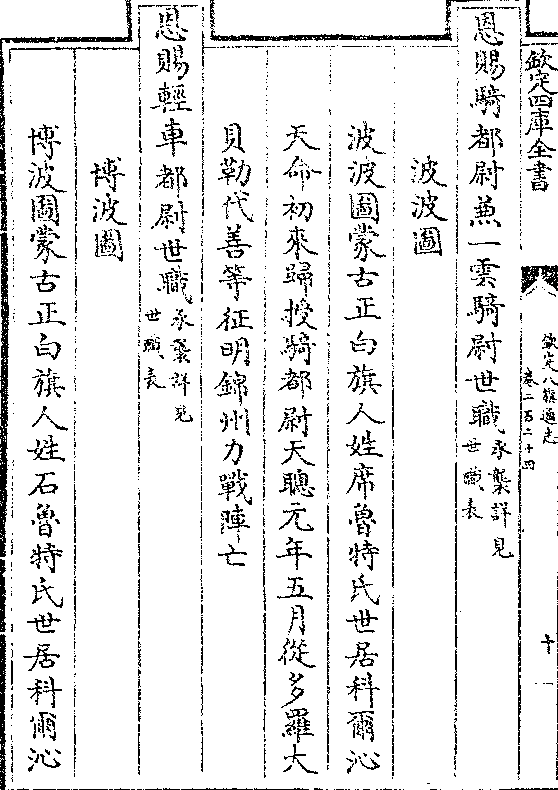 欽定四庫全書
欽定八旗通志
卷二百二十四
十
恩賜騎都尉兼一雲騎尉世職承襲詳見
世職表
波波圖
波波圖蒙古正白旗人姓席魯特氏世居科爾沁
天命初來歸授騎都尉天聰元年五月從多羅大
貝勒代善等征明錦州力戰陣亡
恩賜輕車都尉世職承襲詳見
世職表
博波圖
博波圖蒙古正白旗人姓石魯特氏世居科爾沁